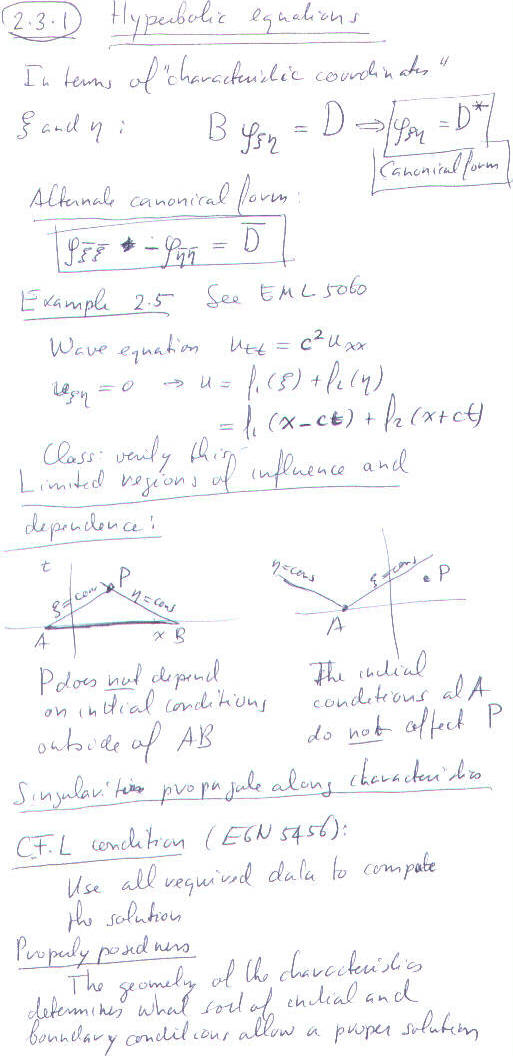 2.3.1 Hyperbolic equations
In terms of "characteristic coordinates"
ξ and η : B φξη = D ⇒ φξη = D*
Canonical form
Alternate canonical form:
φξ̄ξ̄ - φη̄η̄ = D̄
Example 2.5 See EML 5060
Wave equation utt = c²uxx
uξη = 0 → u = f₁(ξ) + f₂(η)
= f₁(x-ct) + f₂(x+ct)
Class: verify this
Limited regions of influence and
dependence:
t
P
ξ=cons η=cons
A x B
η=cons ξ=cons
P
A
P does not depend
on initial conditions
outside of AB
The initial
conditions at A
do not affect P
Singularities propagate along characteristics
C.F.L condition (EGN 5456):
Use all required data to compute
the solution
Properly posedness
The geometry of the characteristics
determines what sort of initial and
boundary conditions allow a proper solution